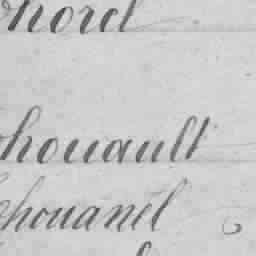 Chord
Chouault
Chouanet